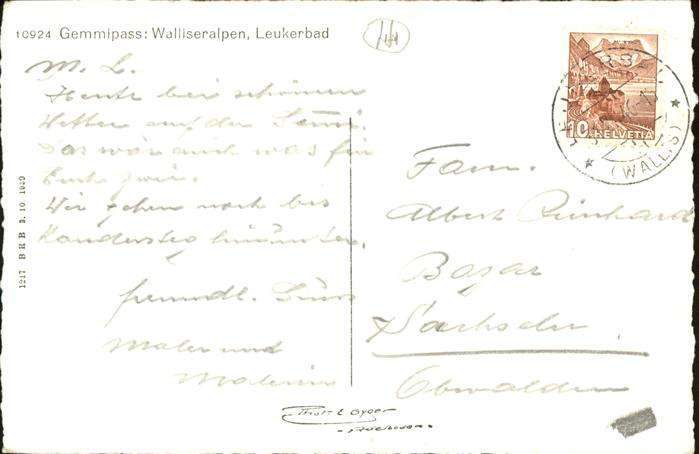 10924 Gemmipass: Walliseralpen, Leukerbad
M. L.
Heute bei schönem
Wetter auf der Gemmi.
Das wär auch was für
Euch zwei.
Wir gehen noch bis
Kandersteg hinunter.
freundl. Gruss
Maler und
Malerin
1247 BRB 3. 10. 1939
10 HELVETIA
(WALLIS)
Fam.
Albert Reinhard
Bazar
Sachseln
Obwalden